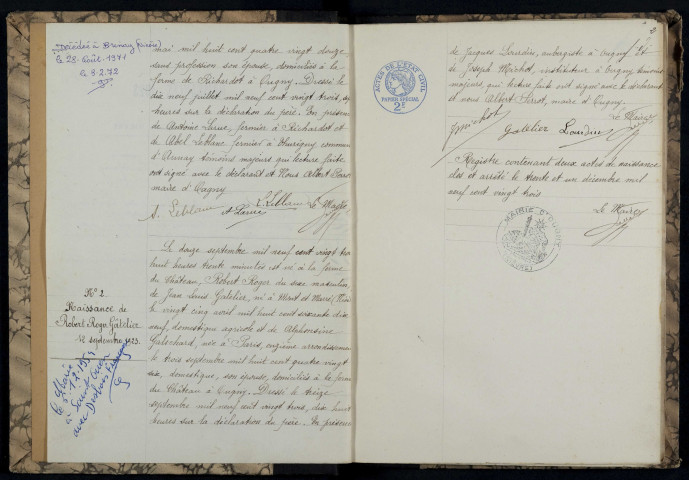 Décédé à
le 28 Août 1971
le 8.2.72
mai mil huit cent quatre vingt douze
sans profession son épouse, domiciliés à la
ferme de Richardot à Ougny. Dressé le
dix neuf juillet mil neuf cent vingt trois,
heures sur la déclaration du père. En présence
de Antoine Larue, fermier à Richardot et
de Abel Leblanc fermier à commune
d'Aunay témoins majeurs qui lecture faite
ont signé avec le déclarant et Nous Albert
maire d'Ougny
Leblanc et Larue L. Leblanc Le Maire
N° 2
Naissance de
Robert Roger Gâtelier
12 septembre 1923.
Marié
le
à
avec
Le douze septembre mil neuf cent vingt trois
huit heures trente minutes est né à la ferme
du Château, Robert Roger du sexe masculin,
de Jean Louis Gatelier, né à
le vingt cinq avril mil huit cent soixante dix
neuf, domestique agricole et de Alphonsine
née à Paris, onzième arrondissement
le trois septembre mil huit cent quatre vingt
dix, domestique, son épouse, domiciliés à la ferme
du Château à Ougny. Dressé le treize
septembre mil neuf cent vingt trois, dix huit
heures sur la déclaration du père. En présence
ACTES DE L'ÉTAT CIVIL
PAPIER SPÉCIAL
2
de Jacques Lourdin, aubergiste à Ougny. Et
de Joseph Michot, instituteur à Ougny, témoins
majeurs, qui lecture faite ont signé avec le déclarant
et nous Albert maire d'Ougny.
Le Maire
J Michot Gatelier Lourdin
Registre contenant deux actes de naissance
clos et arrêté le trente et un décembre mil
neuf cent vingt trois
Le Maire
MAIRIE D'OUGNY